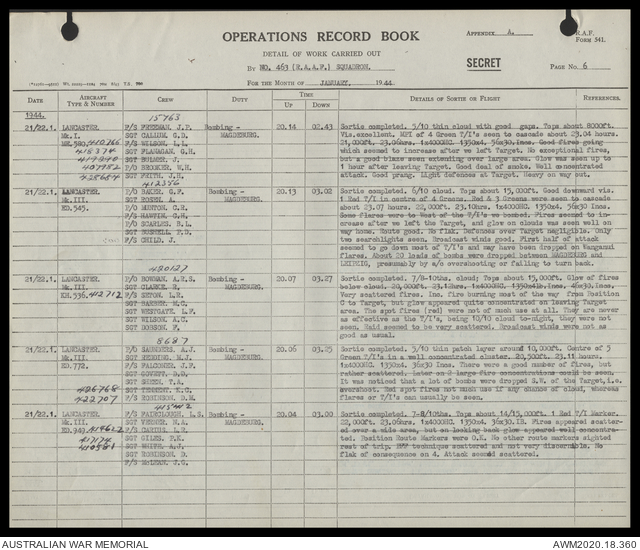 OPERATIONS RECORD BOOK
APPENDIX A.
R.A.F. Form 541.
DETAIL OF WORK CARRIED OUT
SECRET
By NO. 463 (R.A.A.F.) SQUADRON.
PAGE NO. 6
FOR THE MONTH OF JANUARY, 1944
DATE AIRCRAFT TYPE & NUMBER CREW DUTY TIME UP DOWN DETAILS OF SORTIE OR FLIGHT REFERENCES.
1944.
15763
21/22.1. LANCASTER. F/S FREEMAN, J.P. Bombing - 20.14 02.43 Sortie completed. 5/10 thin cloud with good gaps. Tops about 8000ft.
Mk.I. SGT CALLUM, G.D. MAGDEBURG. Vis.excellent. MPI of 4 Green T/I's seen to cascade about 23.04 hours.
ME.580, F/S WILSON, L.L. 21,000ft, 23.06hrs, 1x4000HC. 1350x4, 56x30.Incs. Good fires going
SGT FLANAGAN, G.H. which seemed to increase after we left Target. No exceptional fires,
SGT BULMER, J. but a good blaze seen extending over large area. Glow was seen up to
F/O BROOKER, W.H. 1 hour after leaving Target. Good deal of smoke. Well concentrated
428684 F/S FRITH, J.R. attack. Good prang. Light defences at Target. Heavy on way out.
412356
21/22.1. LANCASTER F/O BAKER, G.F. Bombing - 20.13 03.02 Sortie completed. 6/10 cloud. Tops about 15,000ft. Good downward vis.
Mk.III. SGT ROSEN, A. MAGDEBURG. 1 Red T/I in centre of 4 Greens. Red & 3 Greens were seen to cascade
ED.545. F/S MURTON, C.R. about 23.07 hours. 22,000ft. 23.10hrs. 1x4000HC. 1350x4. 56x30 Incs.
F/S HAWTIN, C.H. Some flares were to West of the T/I's we bombed. Fires seemed to in-
F/O SCARLES, B.L. crease after we left the Target, and glow on clouds was seen well on
SGT BUSHELL, F.D. way home. Route good. No flak. Defences over Target negligible. Only
F/S CHILD, J. two searchlights seen. Broadcast winds good. First half of attack
seemed to go down most of T/I's and may have been dropped on Wanganui
flares. About 20 loads of bombs were dropped between MAGDEBURG and
LEIPZIG, presumably by a/c overshooting or failing to turn back.
420127
21/22.1. LANCASTER. F/S BOWMAN, A.E.S. Bombing - 20.07 03.27 Sortie completed. 7/8-10ths. cloud; Tops about 15,000ft. Glow of fires
Mk.III. SGT CLARKE, R. MAGDEBURG. below cloud. 20,000ft, 23.12hrs, 1x4000HC, 1350x4lb.Incs. 46x30.Incs.
EH.536, 412712 F/S SETON, L.R. Very scattered fires. Inc. fire burning most of the way from Position
SGT BARBER, M.C. C to Target, but glow appeared quite concentrated on leaving Target
SGT WESTGATE, L.F. area. The spot fires (red) were of not much use at all. They are never
SGT WILSON, A.G. as effective as the T/I's, being 10/10 cloud to-night, they were not
SGT DOBSON, F. seen. Raid seemed to be very scattered. Broadcast winds were not as
good as usual.
8687
21/22.1. LANCASTER. F/O SAUNDERS, A.J. Bombing - 20.06 03.25 Sortie completed. 5/10 thin patch layer around 10,000ft. Centre of 5
Mk.III. SGT REDDING, M.J. MAGDEBURG. Green T/I's in a well concentrated cluster. 20,500ft. 23.11 hours.
ED.772. F/S FALCONER, J.F. 1x4000HC. 1350x4, 36x30 Incs. There were a good number of fires, but
SGT COVETT, D.D. rather scattered. Later on 2 large fire concentrations could be seen.
SGT GREEN, T.A. It was noticed that a lot of bombs were dropped S.W. of the Target, i.e.
426768 SGT TENNENT, K.G. overshoot. Red spot fires not much use if any chance of cloud, whereas
422707 F/S ROBINSON, D.M. flares or T/I's can usually be seen.
415412
21/22.1. LANCASTER. F/S FAIRCLOUGH, L.S. Bombing - 20.04 03.00 Sortie completed. 7-8/10ths. Tops about 14/15,000ft. 1 Red T/I Marker.
Mk.III. SGT VERNER, N.A. MAGDEBURG. 22,000ft, 23.06hrs. 1x4000HC. 1350x4, 36x30.IB. Fires appeared scatter-
ED.949, 419622 F/S CARTHY, L.P. ed over a wide area, but on looking back glow appeared well concentra-
417174 SGT GILES, P.K. ted. Position Route Markers were O.K. No other route markers sighted
410581 SGT WHITE, A.J. rest of trip. NEW technique scattered and not very discernible. No
SGT ROBINSON, D. flak of consequence on 4. Attack seemed scattered.
F/S McLEAN, J.G.
AUSTRALIAN WAR MEMORIAL
AWM2020.18.360